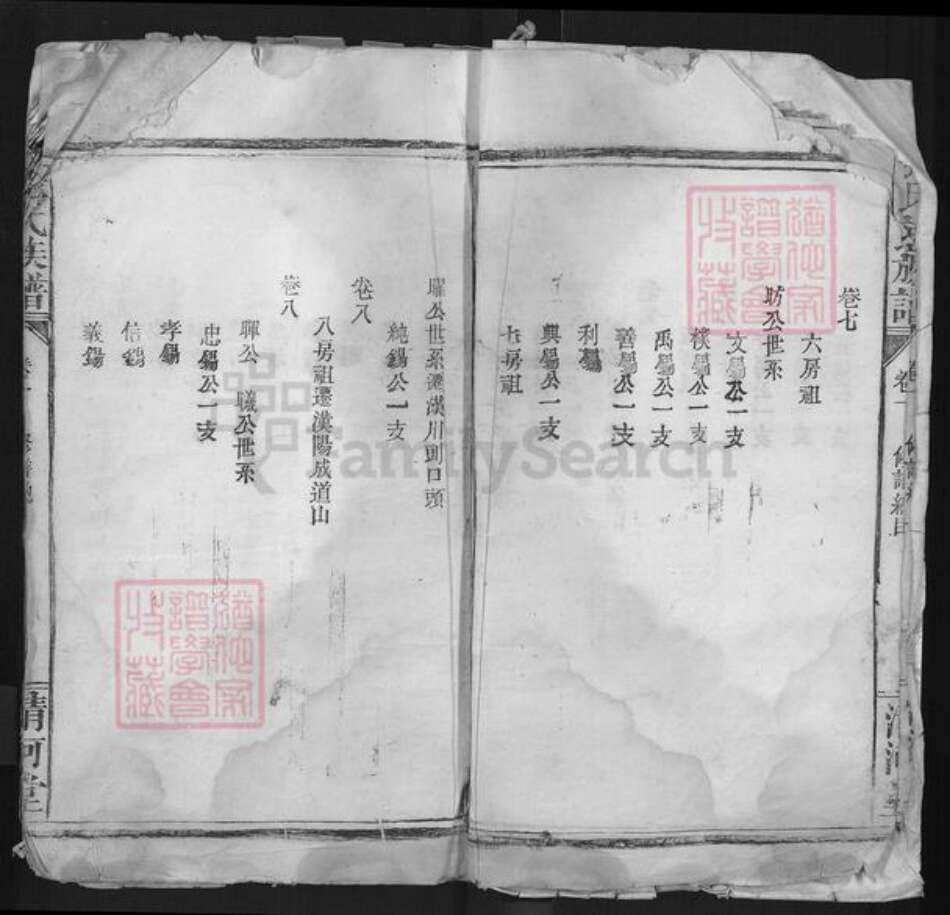 卷七
六房祖
昉公世系
文錫公一支
樸錫公一支
禹錫公一支
善錫公一支
利錫
興錫公一支
七房祖
公世系遷漢川
純錫公一支
卷八
八房祖遷漢陽成道山
卷八
暉公 曦公世系
忠錫公一支
孝錫
信錫
義錫
氏族譜
清河堂
氏族譜
修譜總目
清河
猶他家
譜學會
收藏
猶他家
譜學會
收藏
FamilySearch